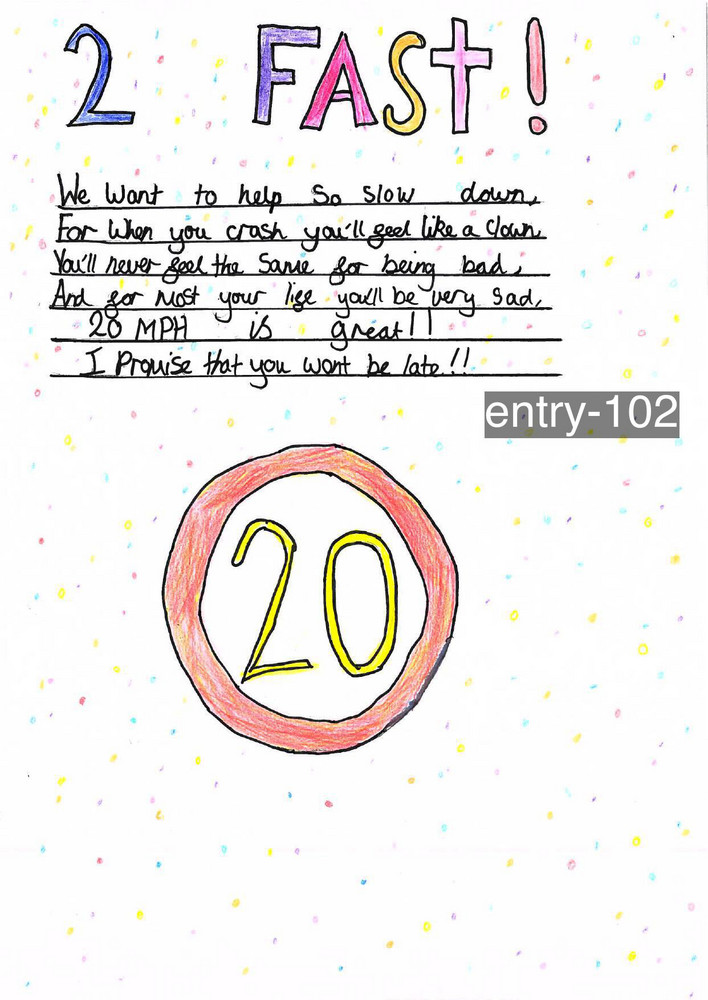 2 FAST!
We Want to help So slow down,
For When you crash you'll feel like a clown,
You'll never feel the Same for being bad,
And for most your life you'll be very sad,
20 MPH is great!!
I Promise that you wont be late!!
entry-102
20